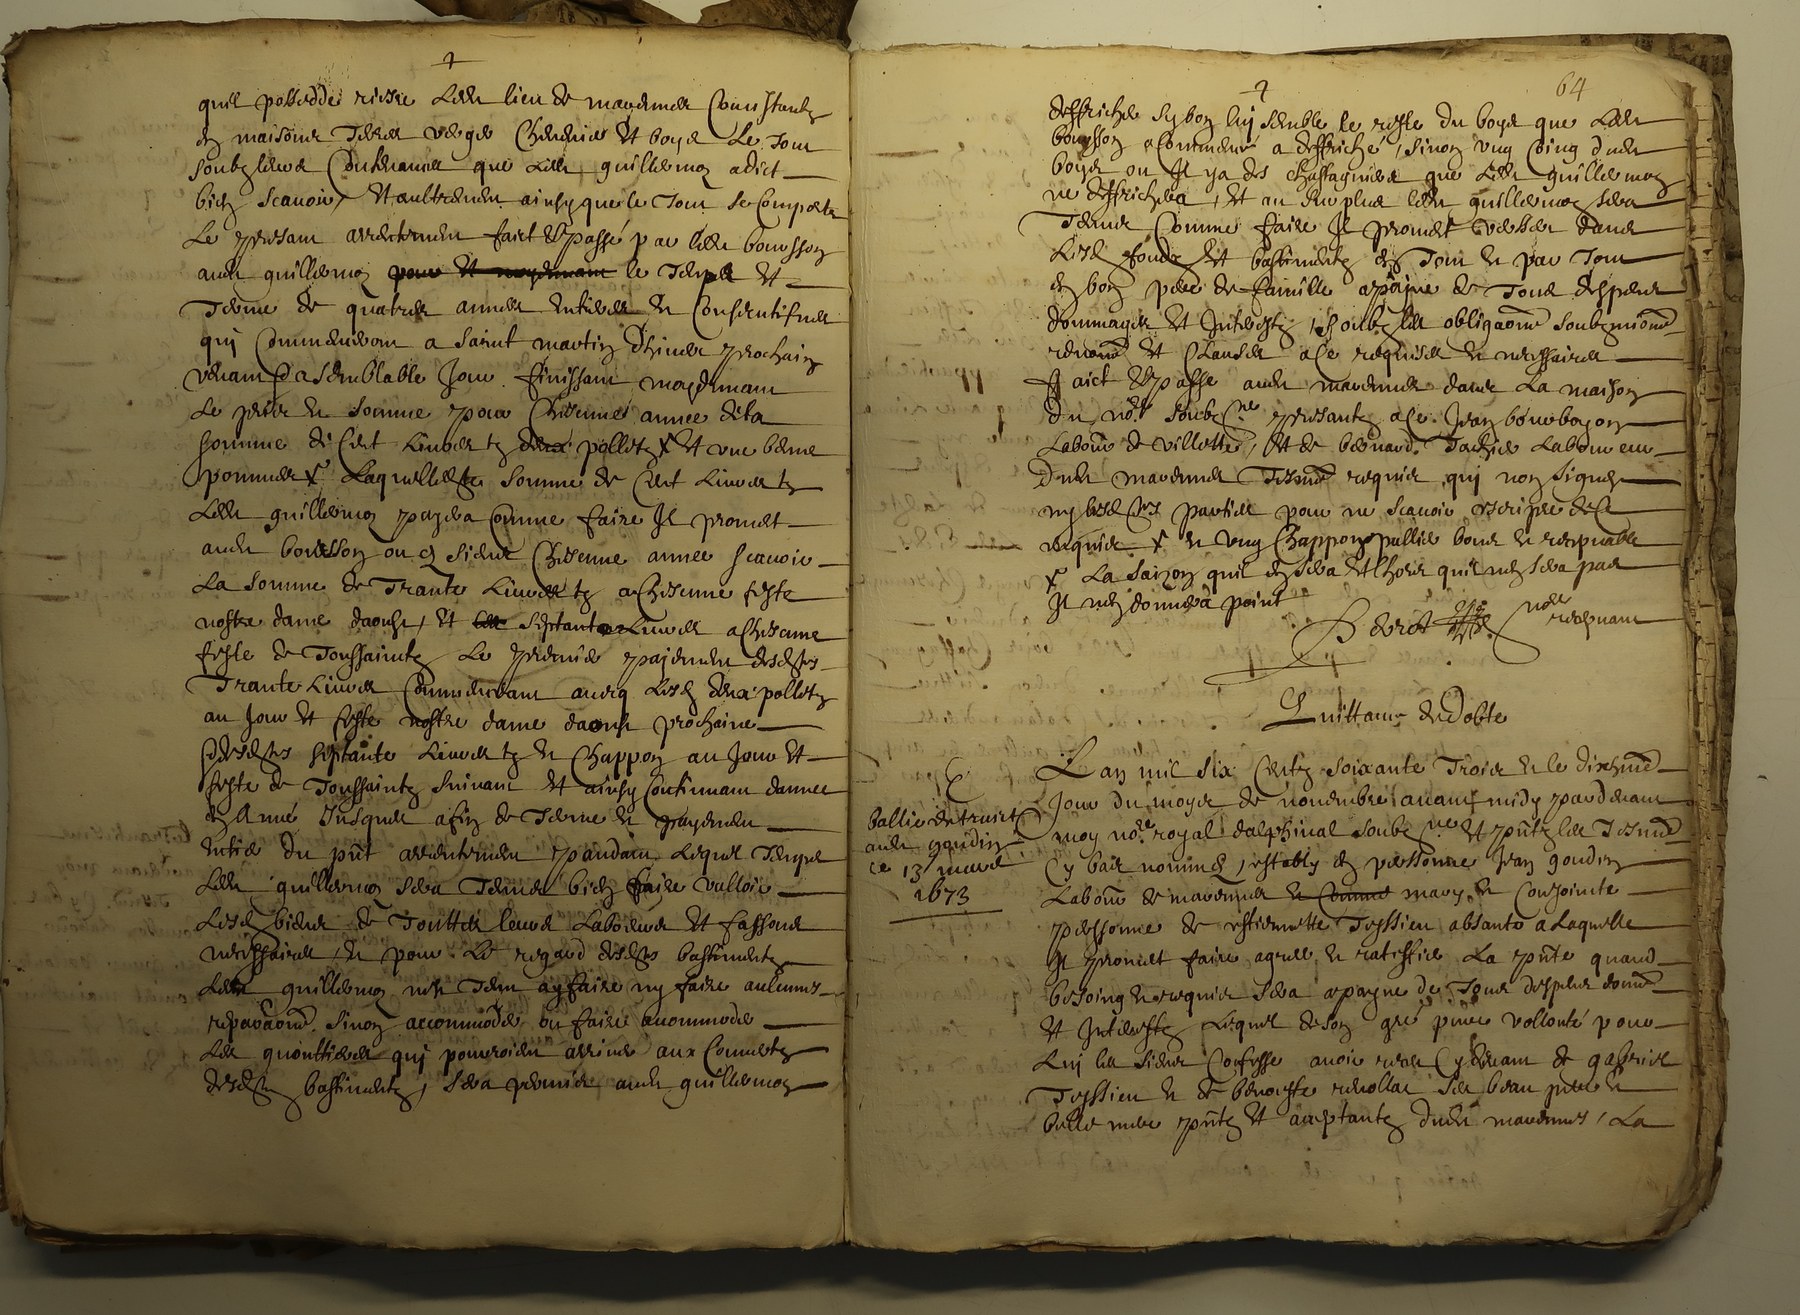 quil possedde riesre Ledt lieu de marennes Consistantz
en maisons Terres verger Chenevier et boys Le Tout
soubz leurs Contenances que Ledt guillermoz a dict
bien scauoir, et aultrement ainsy que le Tout se Comporte
Le present arrentement faict et passé par ledt bonesson
audt guillermoz le Temps et
Terme de quatres annees entieres et Consecutifues
qui Commenceront a saint martin dhiuer prochain
venant a semblable Jour finissant moyennant
Le pris et somme pour Chescune annee de la
somme de Cent Liures tz deux polletz et une benne
pommes Laquelle somme de Cent Liures tz
Ledt guillermoz payera Comme faire Il promet
audt bonesson ou es siens Chescune annee scauoir
La somme de Trante Liures tz a Chescune feste
nostre dame daoust, et septante Liures a Chescune
feste de Toussaintz Le premier payement desdtes
Trante Liures Commencant aueq Lesdt deux polletz
au Jour et feste nostre dame daoust prochaine
septante Liures tz et Chappon au Jour et
feste de Toussaintz suiuant et ainsy Continuant dannee
en Anné Jusques a fin de Terme et payement
entier du pnt arrentement pandant Lequel Temps
Ledt guillermoz sera Tenu bien faire valloir
Lesd biens de Touttes leurs Labeurs et fassons
necessaires, et pour Le regard desdts bastimentz
Ledt guillermoz nest Tenu ny faire aulcunes
reparaõns sinon accommoder ou faire acommoder
Les gouttieres qui pourroient arriuer aux Couuertz
desdtz bastimentz, sera permis audt guillermoz
64
deffricher sy bon luy semble le reste du boys que Ledt
bonesson a Commencé a deffriché, sinon ung Coing dudt
boys ou Il y a des Chastagniers que Ledt guillermoz
ne deffrichera, et au surplus ledt guillermoz sera
Tenu Comme faire Il promet verser dans
Lesd fondz et bastimentz en Tout et par Tout
en bon pere de famille a payne de Tous despens
dommages et Interestz, soubz les obligaõns soubzmions
renonõns et Clauses a ce requises et necessaires
faict et passe audt marennes dans La maison
du nore soubzne presantz a ce Jean bourbogon
Labour de villette, et de bernard Tachier Laboureur
dudt marennes Tesmoins requis qui non signes
ny lesdtes parties pour ne scauoir escripre de ce
requis et ung Chappon pallier bons et receptuable
La saison quil en sera et lhors quil nen sera pas
Il nen donnera point
nore receuant
Quittance de Dotte
Lan mil six Centz soixante Trois et le dixhuict
Jour du moys de nouembre auant midy par deuant
moy nore royal dalphinal soubzne et pntz les Tesmoins
Cy bas nommes, estably en personne Jean goudin
Labour de marennes mary et Conjointe
personne de estiennette Teyssieu absante a Laquelle
Il promet faire agreer et ratiffier La pnte quand
besoing et requis sera a payne de Tous despens domes
et Interestz, Lequel de son gré pure vollonté pour
Luy les siens Confesse auoir receu Cy deuant de gabriel
Teyssieu et de benoiste reuollat ses beau pere et
belle mere pntz et acceptantz dudt marennes, La
ballie extraict
audt goudin
ce 13 mars
1673